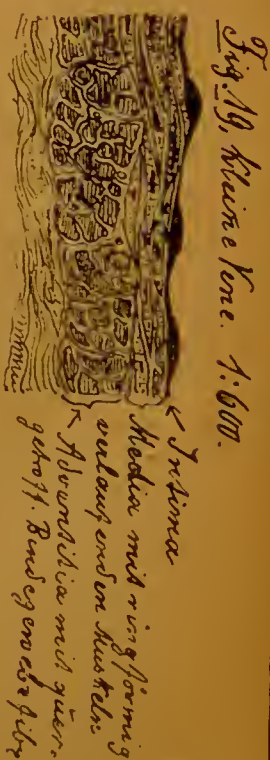 Fig. 19. Kleine Vene. 1:600.
Intima
Media mit ringförmig
verlaufenden Muskeln
Adventitia mit quer-
getroff. Bindegewebsfibr